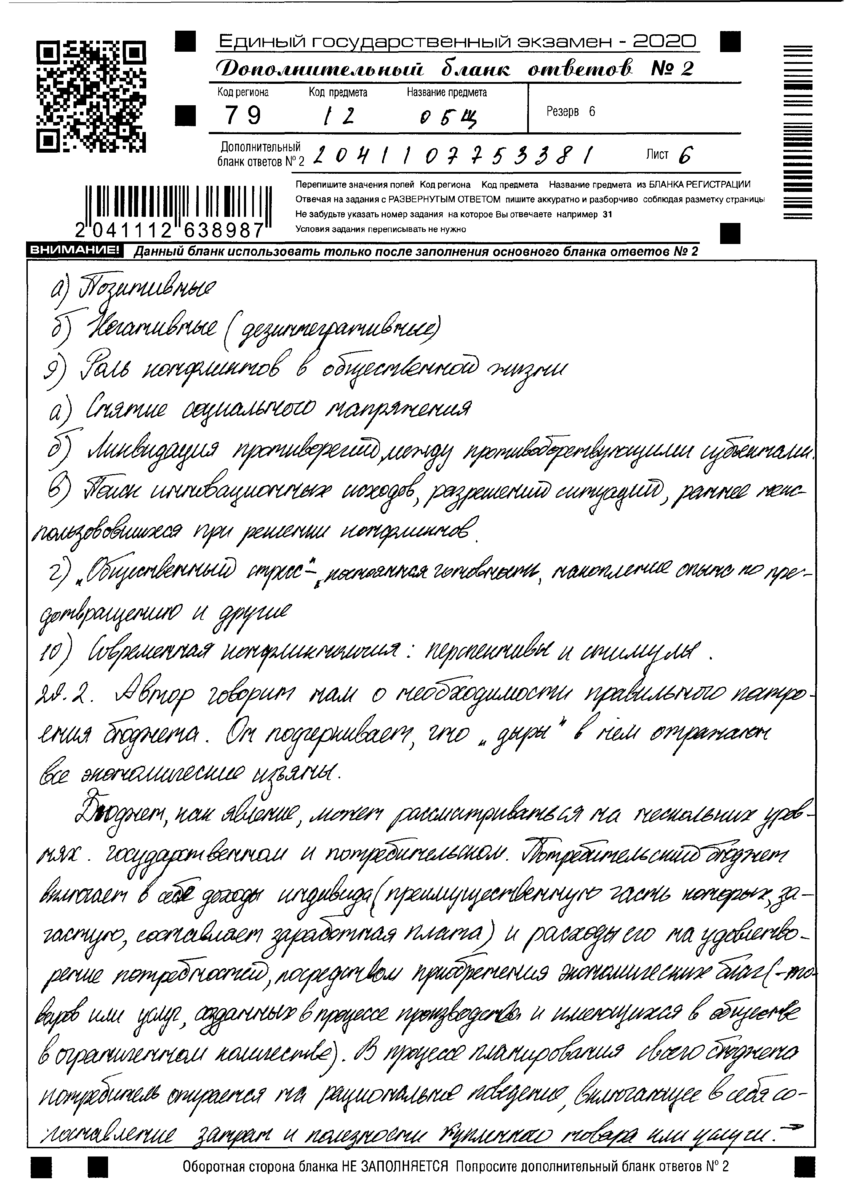 Единый государственный экзамен - 2020
Дополнительный бланк ответов № 2
Код региона Код предмета Название предмета
Резерв 6
79 12 ОБЩ
Дополнительный бланк ответов № 2 2041107753381 Лист 6
Перепишите значения полей Код региона Код предмета Название предмета из БЛАНКА РЕГИСТРАЦИИ
Отвечая на задания с РАЗВЕРНУТЫМ ОТВЕТОМ пишите аккуратно и разборчиво соблюдая разметку страницы
Не забудьте указать номер задания на которое Вы отвечаете например 31
Условия задания переписывать не нужно
2 041112 638987
ВНИМАНИЕ! Данный бланк использовать только после заполнения основного бланка ответов № 2
а) Позитивные
б) Негативные (дезинтегративные)
9) Роль конфликтов в общественной жизни
а) Снятие социального напряжения
б) Ликвидация противоречий, между противоборствующими субъектами.
в) Поиск инновационных исходов, разрешений ситуаций, раннее неис-
пользовавшихся при решении конфликтов.
г) „Общественный стресс“ - постоянная готовность, накопление опыта по пре-
дотвращению и другие
10) Современная конфликтология: перспективы и стимулы.
29.2. Автор говорит нам о необходимости правильного постро-
ения бюджета. Он подчеркивает, что „дыры“ в нем отражают
все экономические изъяны.
Бюджет, как явление, может рассматриваться на нескольких уров-
нях. государственном и потребительском. Потребительский бюджет
включает в себя доходы индивида (преимущественную часть которых, за-
частую, составляет заработная плата) и расходы его на удовлетво-
рение потребностей, посредством приобретения экономических благ (-то-
варов или услуг, созданных в процессе производства и имеющихся в обществе
в ограниченном количестве). В процессе планирования своего бюджета
потребитель опирается на рациональное поведение, включающее в себя со-
поставление затрат и полезности купленного товара или услуги. →
Оборотная сторона бланка НЕ ЗАПОЛНЯЕТСЯ Попросите дополнительный бланк ответов № 2